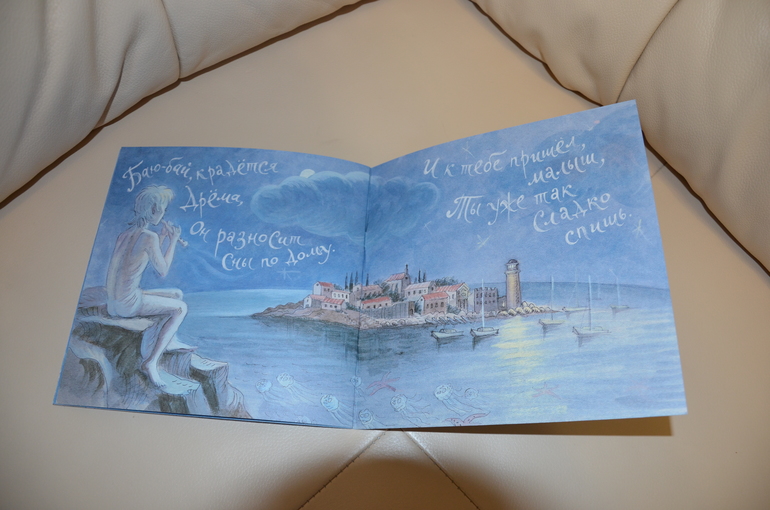 Баю-бай, крадётся
Дрёма,
Он разносит
Сны по дому.
И к тебе пришёл,
малыш,
Ты уже так
сладко
спишь.